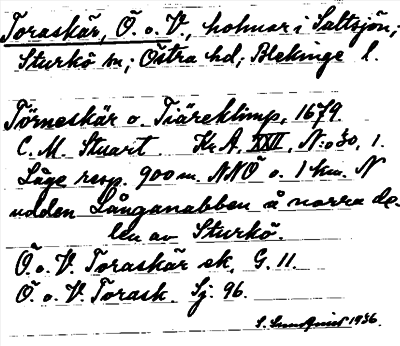 Toraskär, Ö. o. V., holmar i Saltsjön;
Sturkö sn; Östra hd; Blekinge l.
Törneskär o. Tiäreklimp, 1679.
C. M. Stuart. Kr. A. XXII, N:o 30, 1.
Läge resp. 900 m. NNÖ o. 1 km. N
udden Långanabben å norra de-
len av Sturkö.
Ö. o. V. Toraskär ek. G. 11.
Ö. o. V. Torask. Sj. 96.
1936.